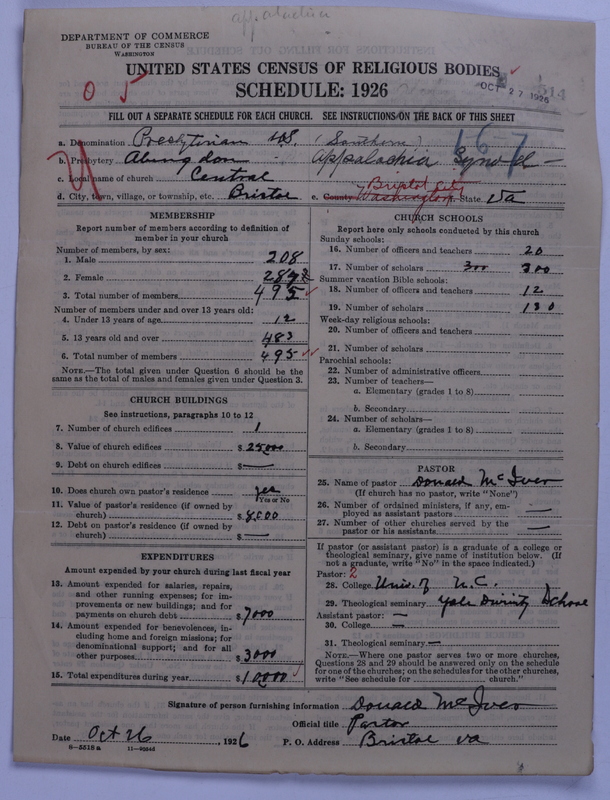 Appalachia
DEPARTMENT OF COMMERCE
BUREAU OF THE CENSUS
WASHINGTON
UNITED STATES CENSUS OF RELIGIOUS BODIES
SCHEDULE: 1926
OCT 27 1926
0 5
FILL OUT A SEPARATE SCHEDULE FOR EACH CHURCH. SEE INSTRUCTIONS ON THE BACK OF THIS SHEET
167
a. Denomination Presbyterian U.S. (Southern)
b. Presbytery Abingdon Appalachia Synod
c. Local name of church Central
d. City, town, village, or township, etc. Bristol e. County Washington Bristol City State Va
MEMBERSHIP
Report number of members according to definition of member in your church
Number of members, by sex:
1. Male 208
2. Female 287
3. Total number of members 495
Number of members under and over 13 years old:
4. Under 13 years of age 12
5. 13 years old and over 483
6. Total number of members 495
NOTE.—The total given under Question 6 should be the same as the total of males and females given under Question 3.
CHURCH BUILDINGS
See instructions, paragraphs 10 to 12
7. Number of church edifices 1
8. Value of church edifices $ 25000
9. Debt on church edifices $ —
10. Does church own pastor's residence yes
Yes or No
11. Value of pastor's residence (if owned by church) $ 8,000
12. Debt on pastor's residence (if owned by church) $ —
EXPENDITURES
Amount expended by your church during last fiscal year
13. Amount expended for salaries, repairs, and other running expenses; for improvements or new buildings; and for payments on church debt $ 7000
14. Amount expended for benevolences, including home and foreign missions; for denominational support; and for all other purposes $ 3000
15. Total expenditures during year $ 10000
CHURCH SCHOOLS
Report here only schools conducted by this church
Sunday schools:
16. Number of officers and teachers 20
17. Number of scholars 300 300
Summer vacation Bible schools:
18. Number of officers and teachers 12
19. Number of scholars 130
Week-day religious schools:
20. Number of officers and teachers
21. Number of scholars
Parochial schools:
22. Number of administrative officers
23. Number of teachers—
a. Elementary (grades 1 to 8)
b. Secondary
24. Number of scholars—
a. Elementary (grades 1 to 8)
b. Secondary
PASTOR
25. Name of pastor Donald McIver
(If church has no pastor, write "None")
26. Number of ordained ministers, if any, employed as assistant pastors —
27. Number of other churches served by the pastor or his assistants —
If pastor (or assistant pastor) is a graduate of a college or theological seminary, give name of institution below. (If not a graduate, write "No" in the space indicated.)
Pastor: 2
28. College Univ. of N.C.
29. Theological seminary Yale Divinity School
Assistant pastor: —
30. College —
31. Theological seminary —
NOTE.—Where one pastor serves two or more churches, Questions 28 and 29 should be answered only on the schedule for one of the churches; on the schedules for the other churches, write "See schedule for church."
Signature of person furnishing information Donald McIver
Official title Pastor
Date Oct 26, 1926 P. O. Address Bristol Va
6—5518 a